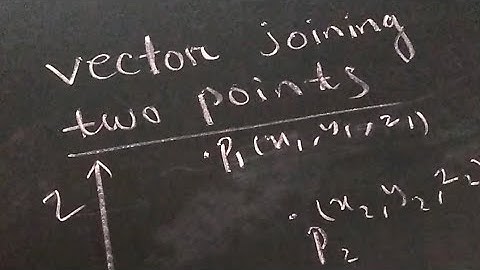 vector joining
two points
.P₁(x₁,y₁,z₁)
Z
.(x₂,y₂,z₂)
P₂